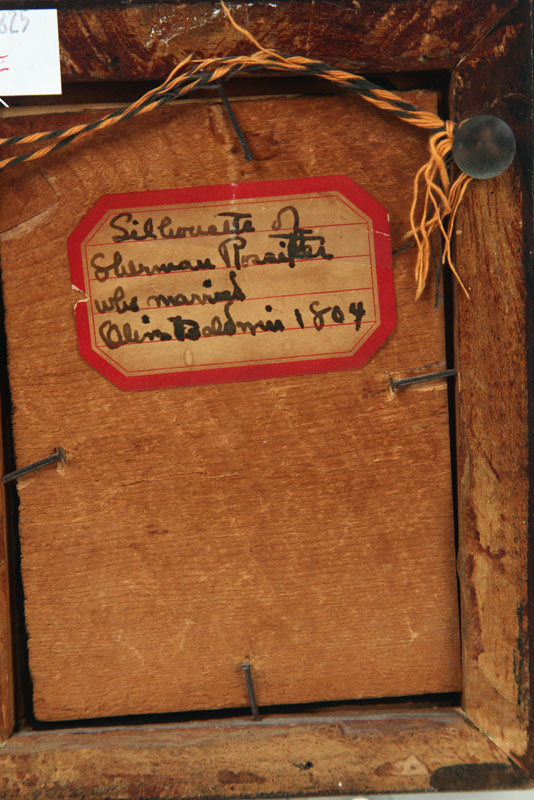 Silhouette of
Sherman Rossiter
who married
Olive Baldwin 1804